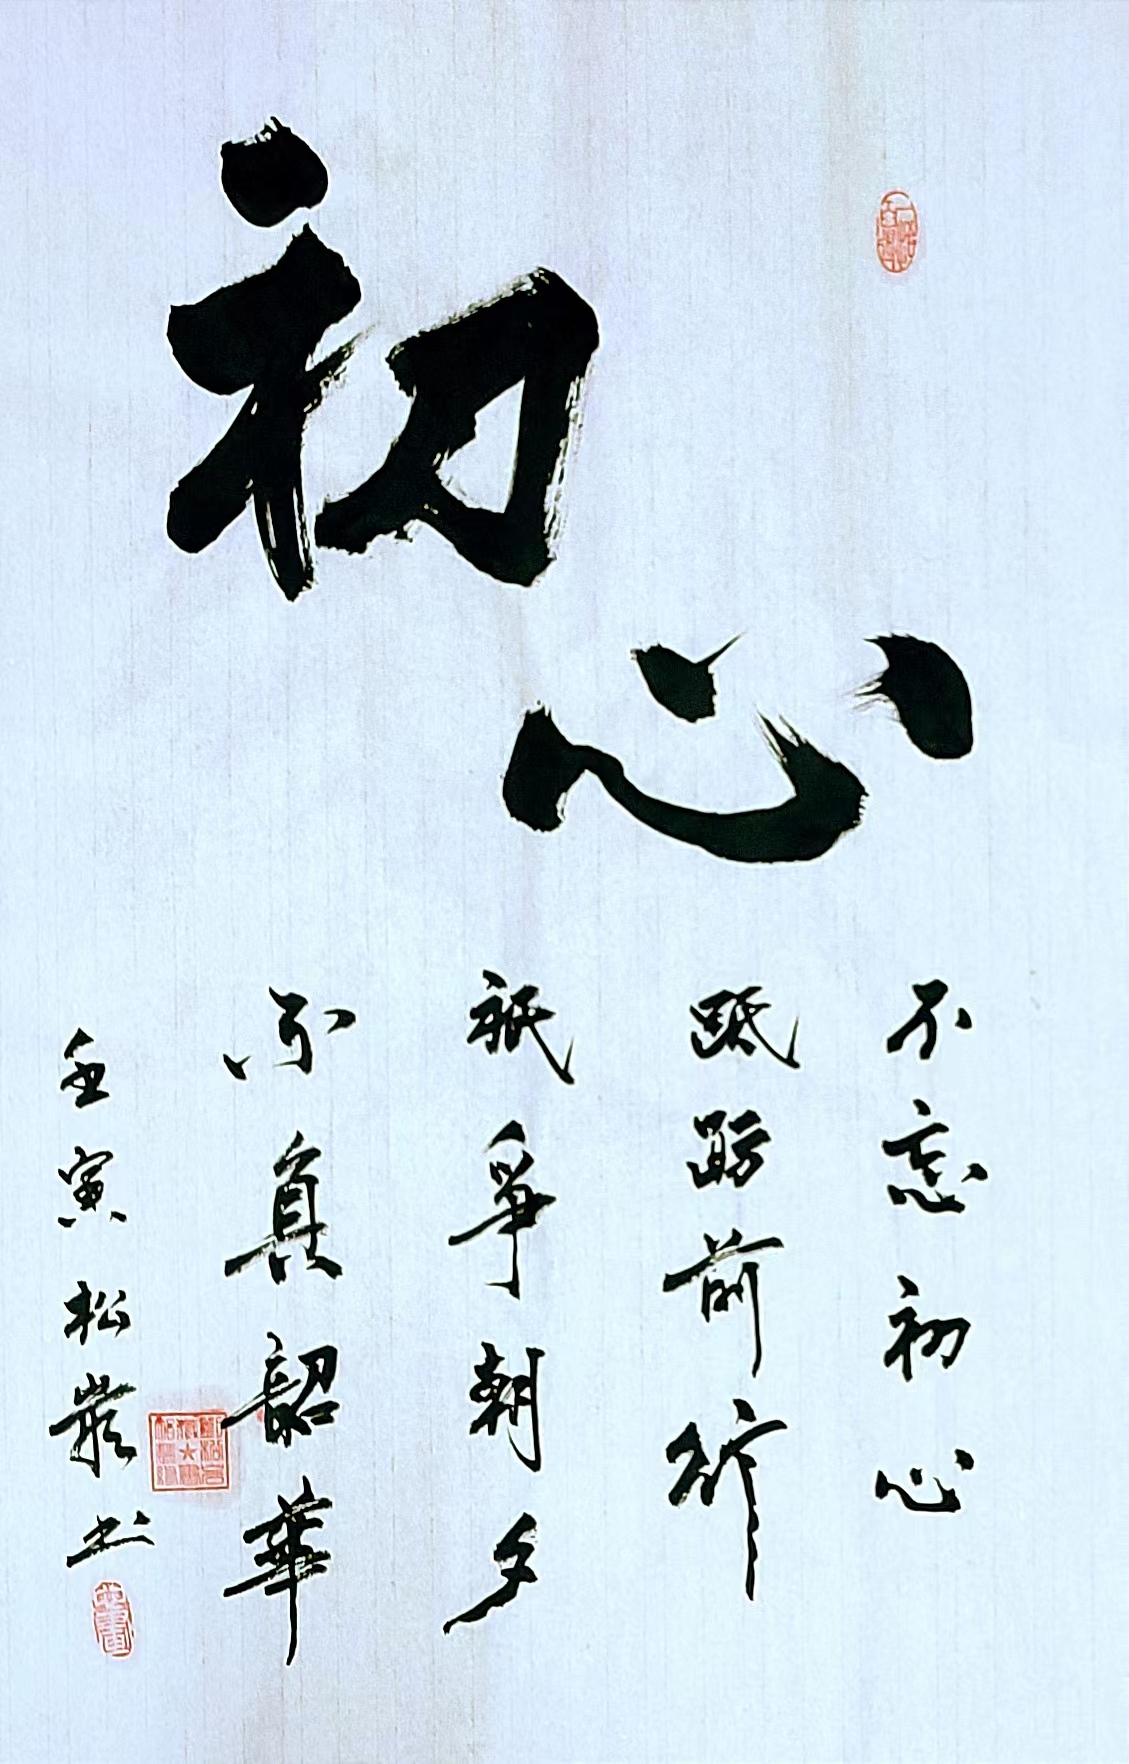 初心
不忘初心
砥砺前行
祇争朝夕
不負韶華
壬寅松巖书